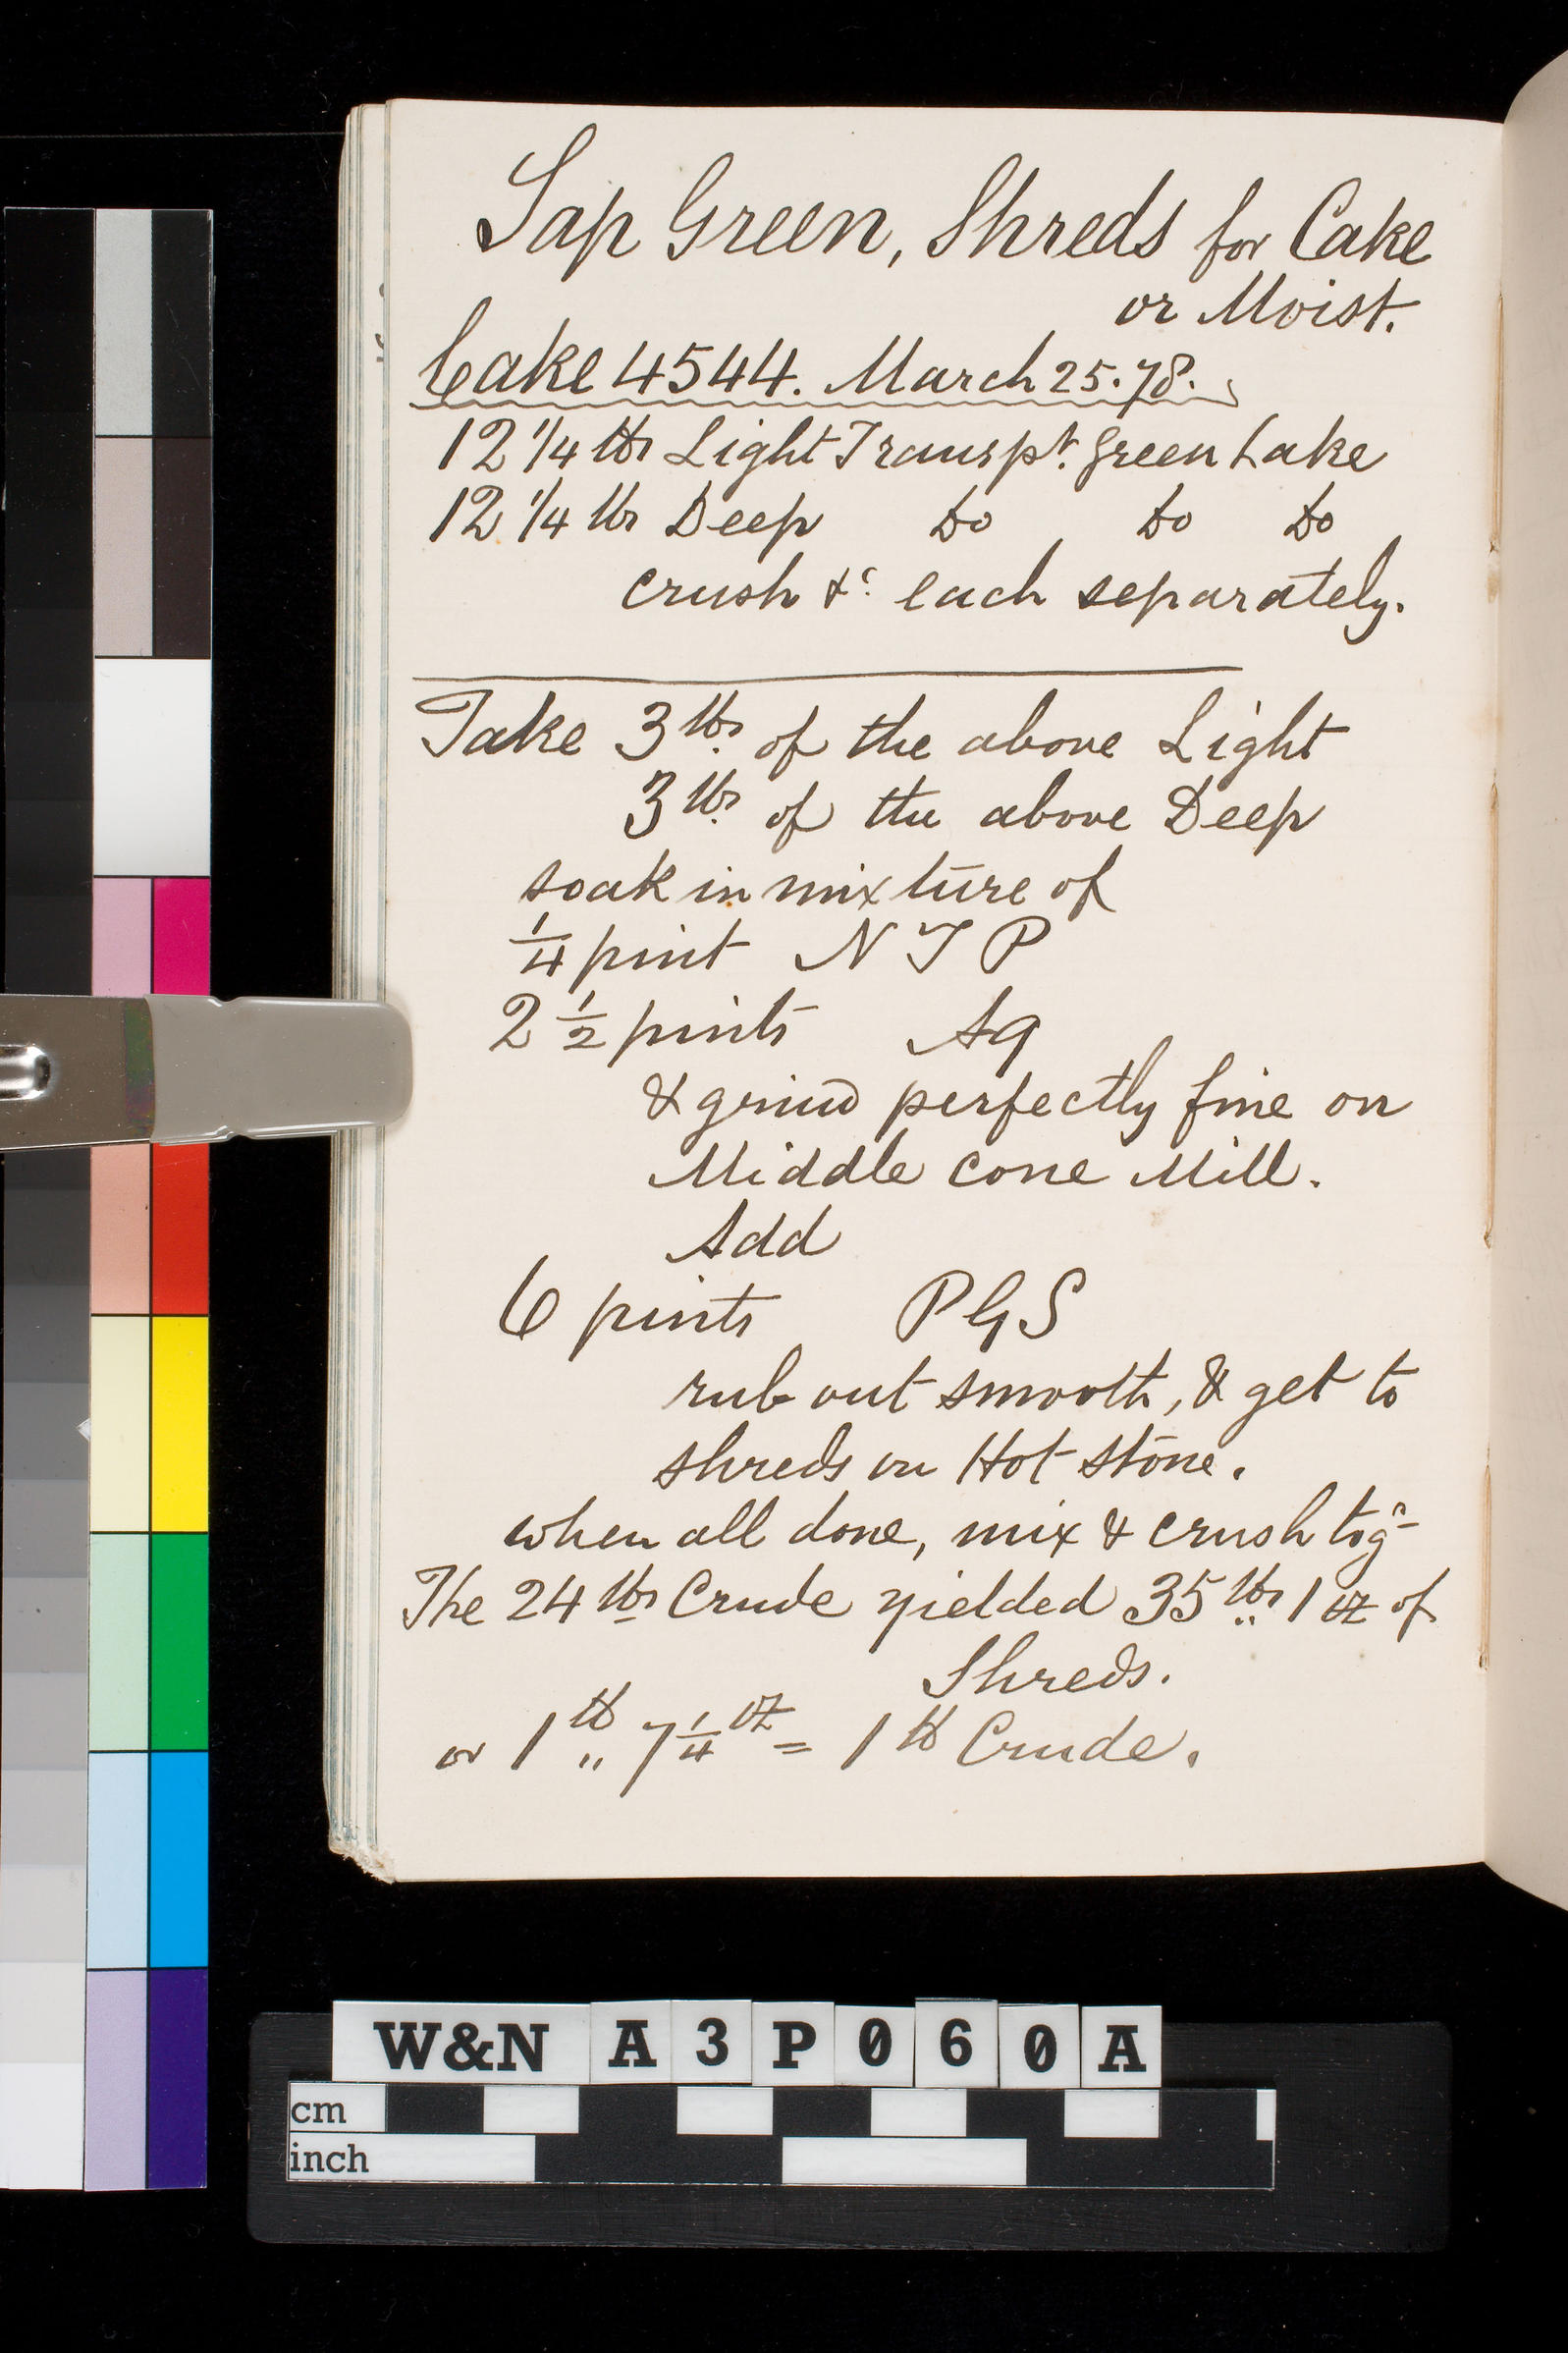 Sap Green, Shreds for Cake
or Moist.
Cake 4544. March 25.78.
12 1/4 lbs Light Transpt. Green Lake
12 1/4 lbs Deep do do do
crush &c each separately.
Take 3 lbs. of the above Light
3 lbs. of the above Deep
soak in mixture of
1/4 pint N T P
2 1/2 pints Aq
& grind perfectly fine on
Middle cone Mill.
Add
6 pints P G S
rub out smooth, & get to
shreds on Hot stone.
when all done, mix & crush togr
The 24 lbs Crude yielded 35 lbs,, 1 oz of
Shreds.
or 1 lb,, 7 1/4 oz = 1 lb Crude.
W&N A3P060A
cm
inch